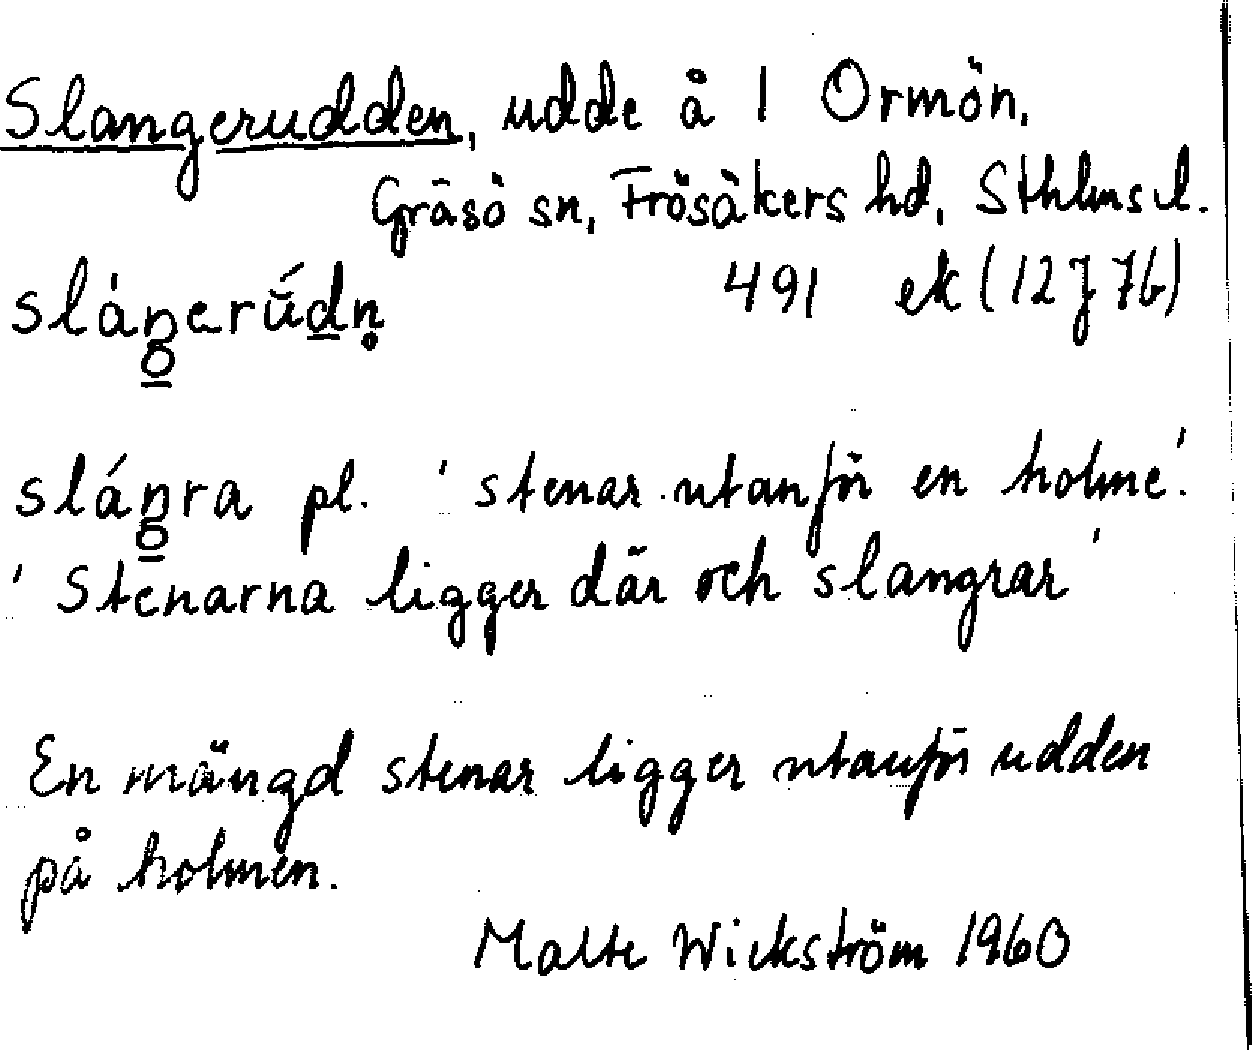 Slangerudden, udde å 1 Ormön.
Gräsö sn, Frösåkers hd, Sthlms l.
491 ek (12 J 7b)
sláŋerúdn̥
sláŋra pl. 'stenar utanför en holme'.
'Stenarna ligger där och slangrar'
En mängd stenar ligger utanför udden
på holmen.
Malte Wickström 1960